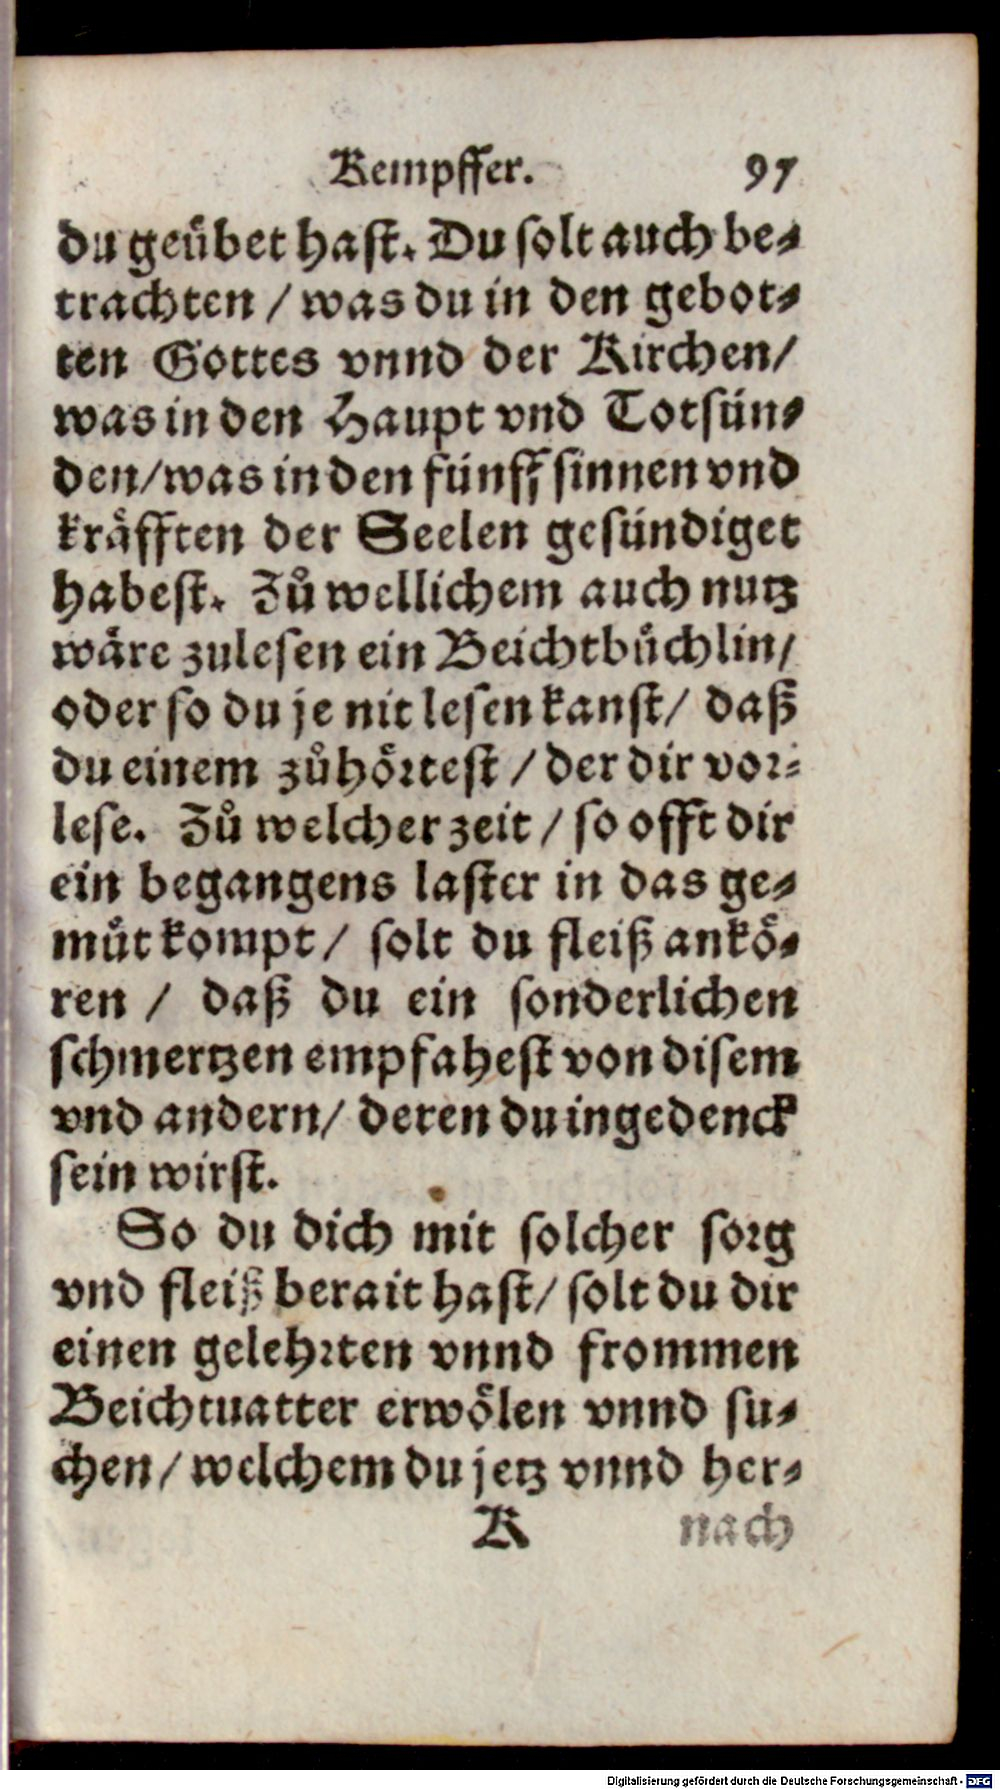 Kempffer. 97
du geübet hast. Du solt auch be-
trachten / was du in den gebot-
ten Gottes vnnd der Kirchen/
was in den Haupt vnd Totsün-
den/was in den fünff sinnen vnd
kräfften der Seelen gesündiget
habest. Zů wellichem auch nutz
wäre zulesen ein Beichtbüchlin/
oder so du je nit lesen kanst/ daß
du einem zůhörtest / der dir vor-
lese. Zů welcher zeit / so offt dir
ein begangens laster in das ge-
müt kompt/ solt du fleiß ankö-
ren / daß du ein sonderlichen
schmertzen empfahest von disem
vnd andern/ deren du ingedenck
sein wirst.
So du dich mit solcher sorg
vnd fleiß berait hast/ solt du dir
einen gelehrten vnnd frommen
Beichtuatter erwölen vnnd su-
chen/welchem du jetz vnnd her-
K nach
Digitalisierung gefördert durch die Deutsche Forschungsgemeinschaft - DFG